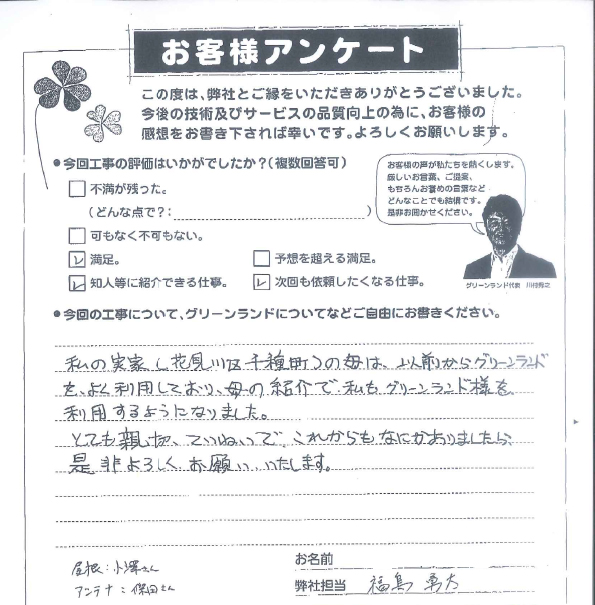 お客様アンケート
この度は、弊社とご縁をいただきありがとうございました。
今後の技術及びサービスの品質向上の為に、お客様の
感想をお書き下されば幸いです。よろしくお願いします。
●今回工事の評価はいかがでしたか?(複数回答可)
不満が残った。
(どんな点で?:
)
可もなく不可もない。
満足。
予想を超える満足。
知人等に紹介できる仕事。
次回も依頼したくなる仕事。
お客様の声が私たちを動くします。
厳しいお言葉、ご提案、
もちろんお誉めの言葉など
どんなことでも結構です。
是非お聞かせください。
グリーンランド代表
●今回の工事について、グリーンランドについてなどご自由にお書きください。
私の実家(花見川区千種町)の母は、以前からグリーンランド
を、よく利用しており、母の紹介で私もグリーンランド様を
利用するようになりました。
とても親切、ていねいで、これからもなにかありましたら、
是非よろしくお願いいたします。
屋根:小澤さん
アンテナ:保田さん
お名前
弊社担当 福島 勇太